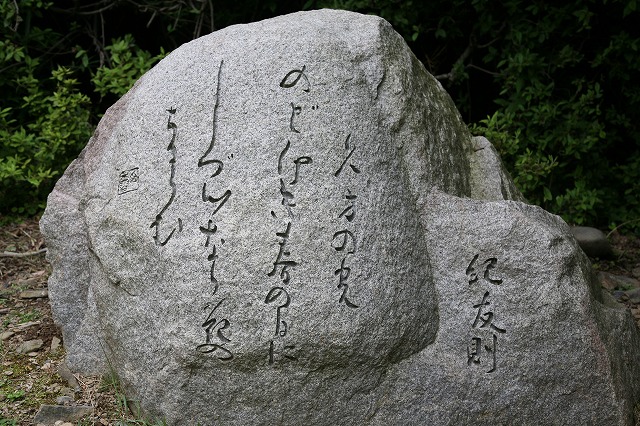 紀友則
久方の光
のどけき春の日に
しづ心なく花の
ちるらむ